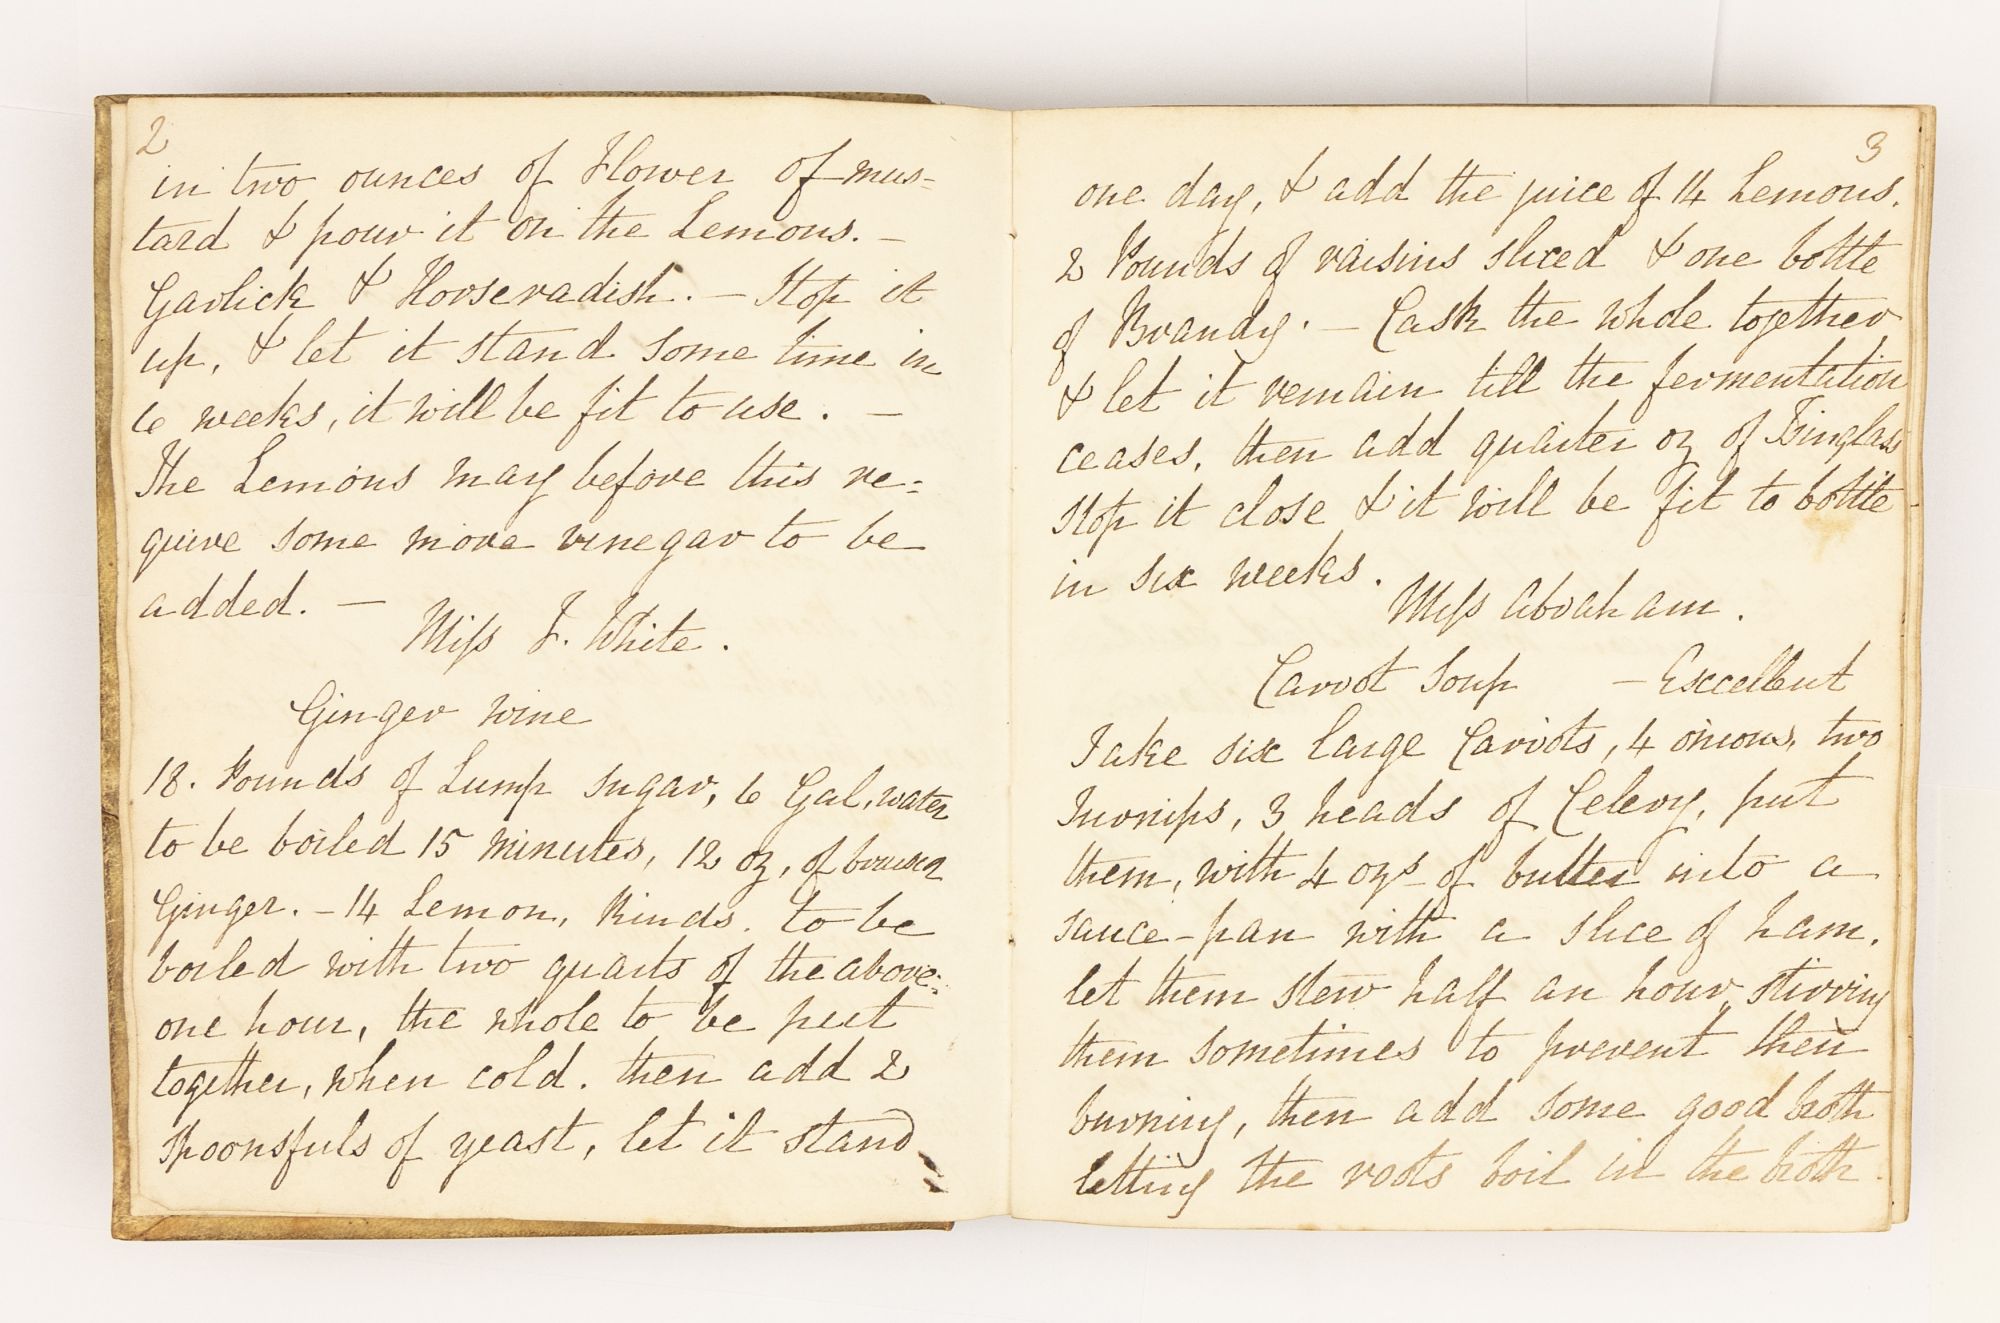 2
in two ounces of Flower of mus=
tard & pour it on the Lemons. –
Garlick & Horseradish. – Stop it
up, & let it stand some time in
6 weeks, it will be fit to use. –
The Lemons may before this re=
quire some more vinegar to be
added. –
Miss F. White.
Ginger Wine
18. Pounds of Lump Sugar, 6 Gal, water
to be boiled 15 minutes, 12 oz, of bruised
Ginger. – 14 Lemon, Rinds. to be
boiled with two quarts of the above:
one hour, the whole to be put
together, when cold. then add 2
Spoonsfuls of yeast, let it stand
3
one day, & add the juice of 14 Lemons.
2 Pounds of raisins sliced & one bottle
of Brandy. – Cask the whole together
& let it remain till the fermentation
ceases, then add quarter oz of Isinglass
stop it close & it will be fit to bottle
in six weeks.
Miss Abraham.
Carrot Soup – Excellent
Take six large Carrots, 4 onions, two
Turnips, 3 heads of Celery, put
them, with 4 ozs of butter into a
sauce-pan with a slice of ham.
let them stew half an hour, stirring
them sometimes to prevent their
burning, then add some good broth
letting the roots boil in the broth.